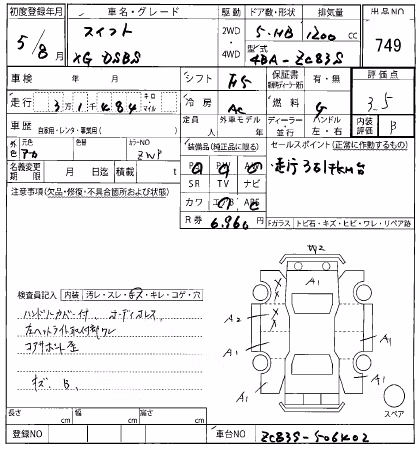 初度登録年月 車名・グレード 駆動 ドア数・形状 排気量 出品NO
5/8月 スイフト 2WD・4WD 5・HB 1200cc 749
XG DSBS 型式 4BA-ZC83S
車検 年 月 シフト 保証書 有・無 評価点
走行 3万1千484 キロ マイル 冷房 AC 燃料 G 3.5
車歴 自家用・レンタ・事業用( ) 定員 人 外車モデル 年 ディーラー・並行 ハンドル 左・右 内装評価 B
外色 元色 アカ 色替 カラーNO ZWP 装備品(純正品に限る) セールスポイント(正常に作動するもの)
名義変更期限 月 日 月迄 積載 t SR TV ナビ 走行3.1千km台
注意事項(欠品・修復・不具合箇所および状態) カワ
R券 6,960 Fガラス トビ石・キズ・ヒビ・ワレ・リペア跡
検査員記入 内装 汚レ・スレ・キズ・キレ・コゲ・穴
ハンドルカバー付 オーディオレス
左ヘットライト取付部ワレ
コアサポート歪
キズ B
A1
A2
A1
A1
A1
A1
スペア
長さ cm 幅 cm 高さ cm
登録NO 車台NO ZC83S-506402